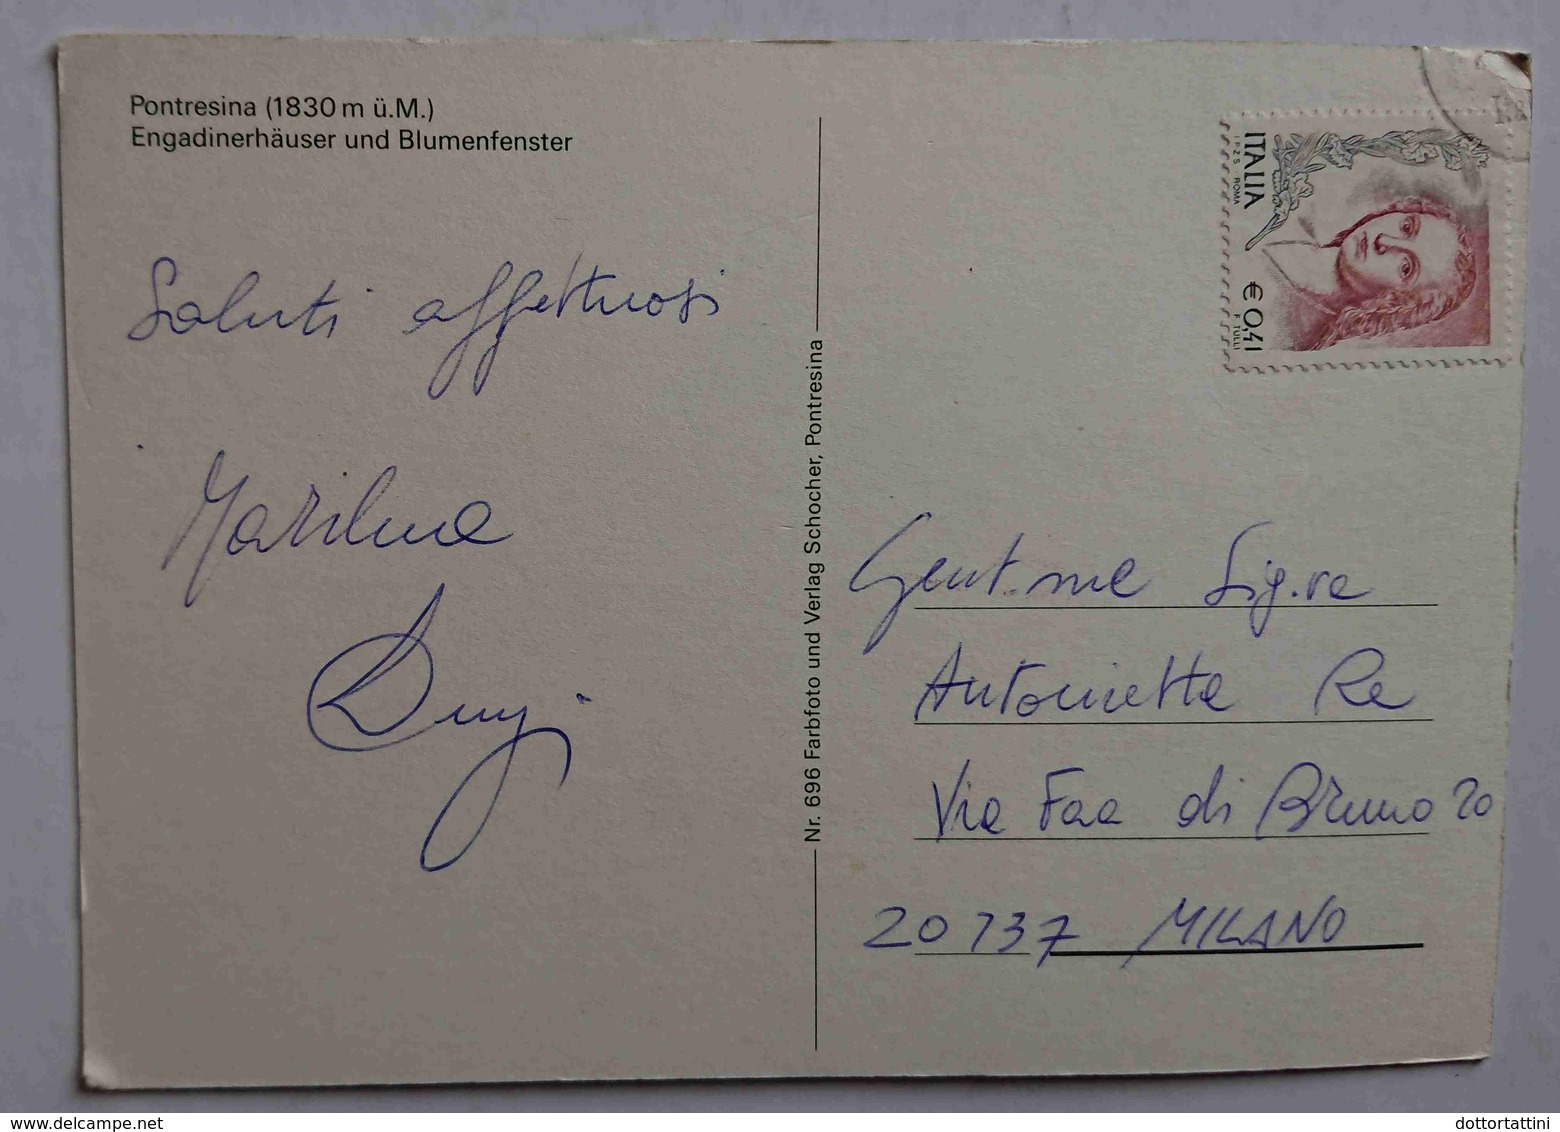 Pontresina (1830 m ü.M.)
Engadinerhäuser und Blumenfenster
Saluti affettuosi
Marilena
Luigi
Nr. 696 Farbfoto und Verlag Schocher, Pontresina
ITALIA
IPZS ROMA
€ 0,41
F. TULLI
Gent.me Sig.re
Antonietta Re
Via Faa di Bruno 20
20137 MILANO
www.delcampe.net
dottortattini